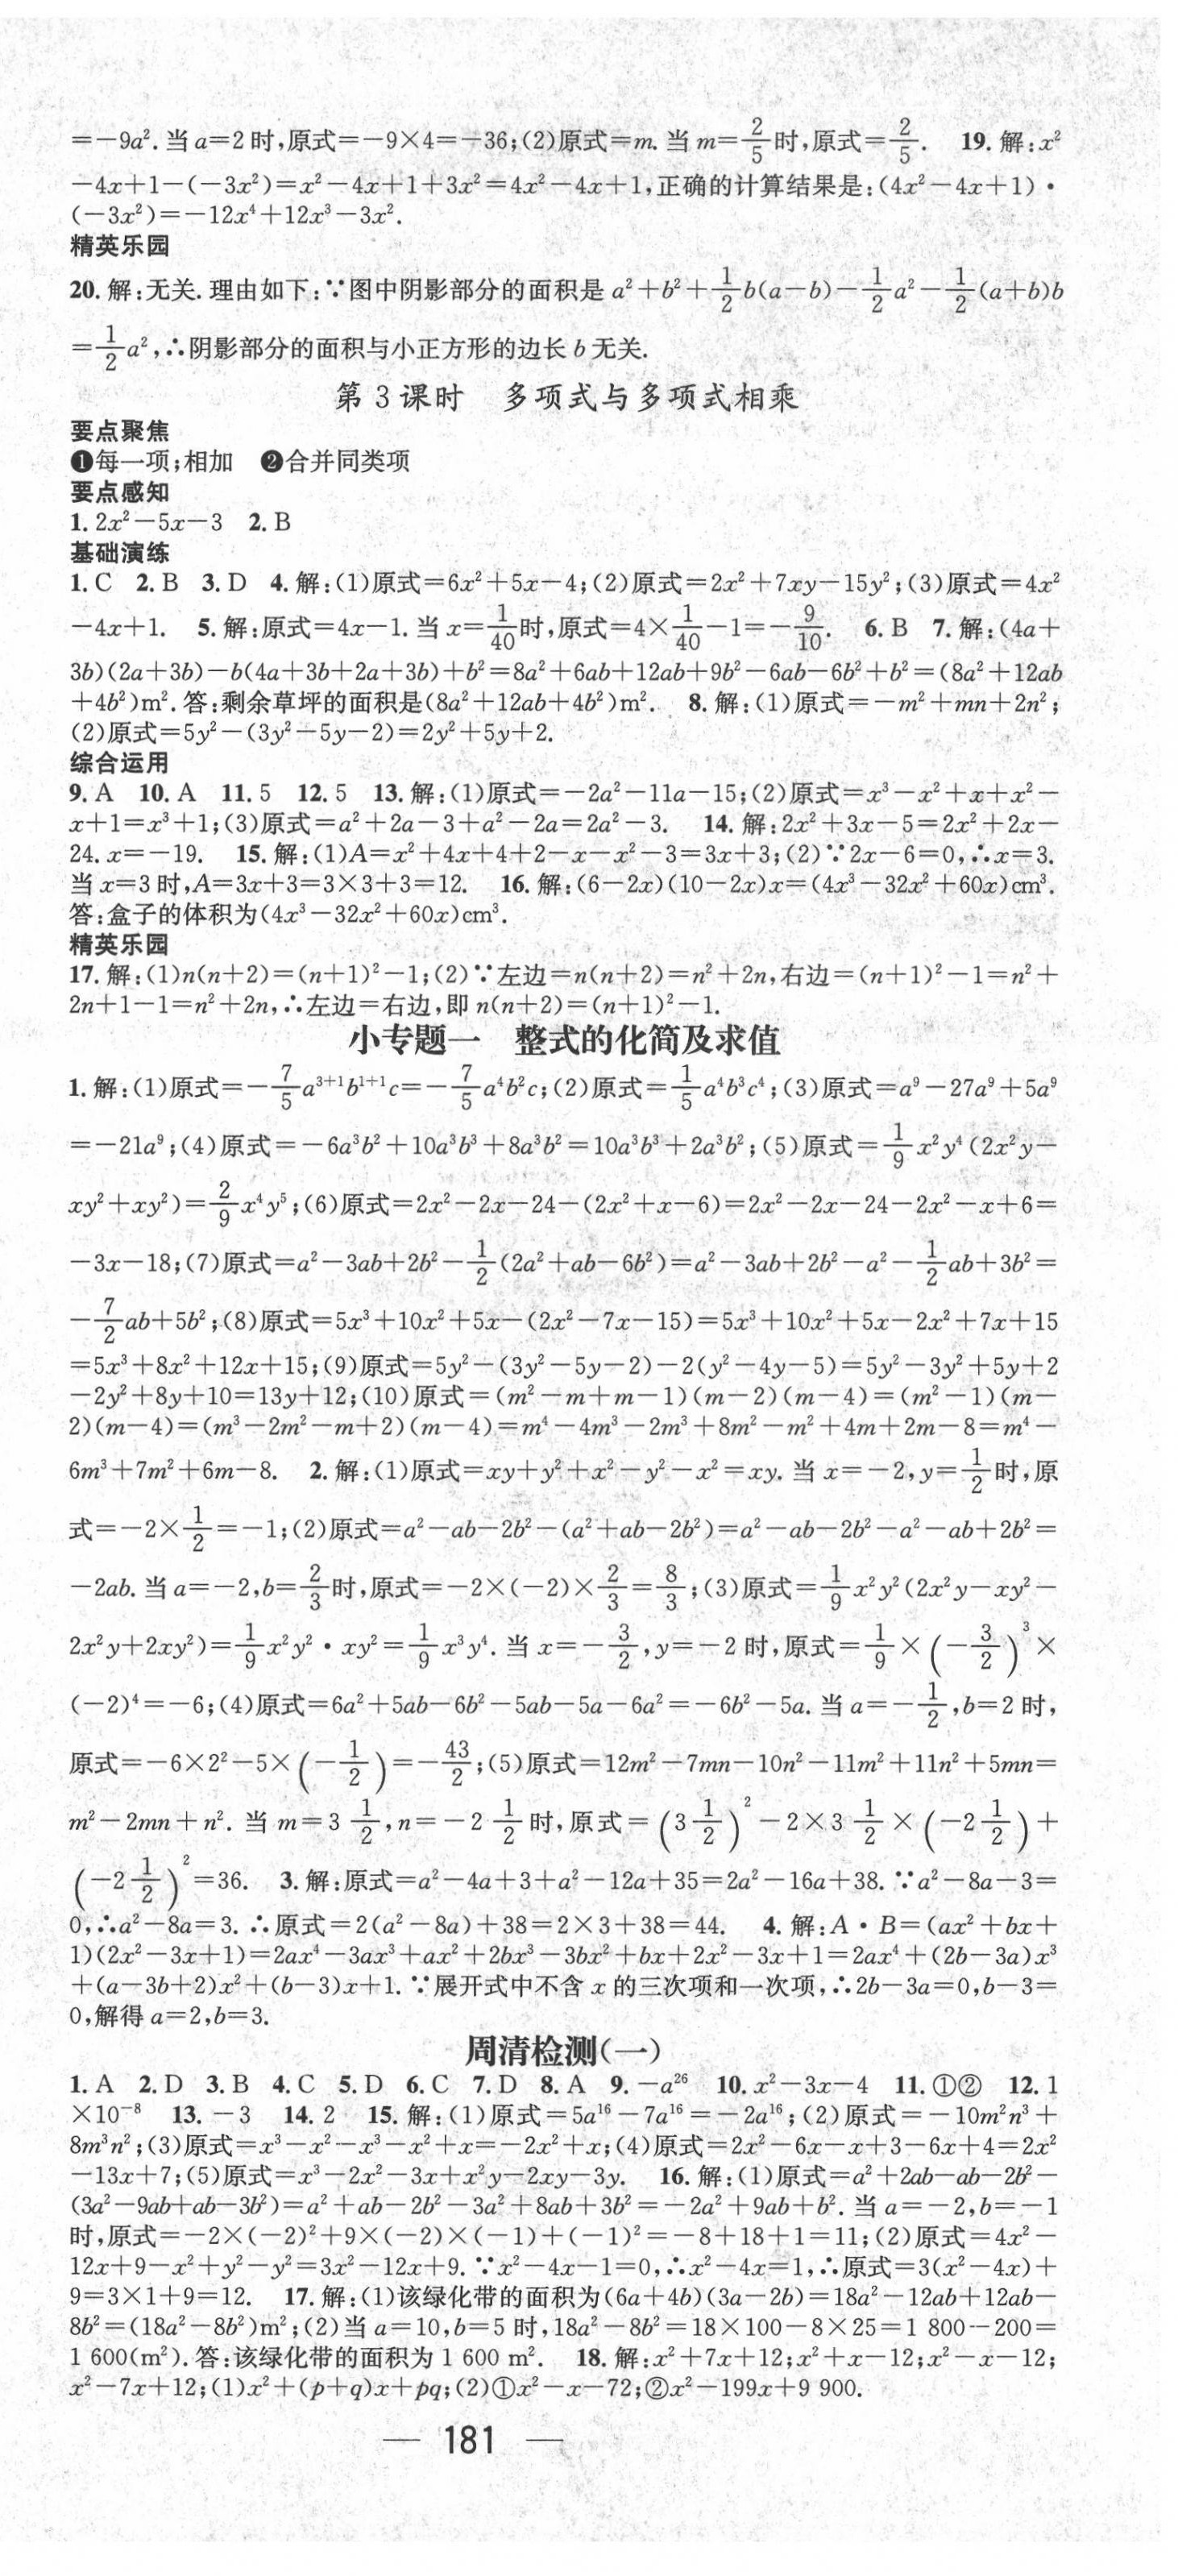 =-9a². 当 a=2 时,原式=-9×4=-36;(2)原式=m. 当 m=2/5时,原式=2/5. 19. 解:x²
-4x+1-(-3x²)=x²-4x+1+3x²=4x²-4x+1,正确的计算结果是:(4x²-4x+1)·
(-3x²)=-12x⁴+12x³-3x².
精英乐园
20. 解:无关. 理由如下:∵图中阴影部分的面积是 a²+b²+1/2b(a-b)-1/2a²-1/2(a+b)b
=1/2a²,∴阴影部分的面积与小正方形的边长 b 无关.
第 3 课时 多项式与多项式相乘
要点聚焦
❶每一项;相加 ❷合并同类项
要点感知
1. 2x²-5x-3 2. B
基础演练
1. C 2. B 3. D 4. 解:(1)原式=6x²+5x-4;(2)原式=2x²+7xy-15y²;(3)原式=4x²
-4x+1. 5. 解:原式=4x-1. 当 x=1/40时,原式=4×1/40-1=-9/10. 6. B 7. 解:(4a+
3b)(2a+3b)-b(4a+3b+2a+3b)+b²=8a²+6ab+12ab+9b²-6ab-6b²+b²=(8a²+12ab
+4b²)m². 答:剩余草坪的面积是(8a²+12ab+4b²)m². 8. 解:(1)原式=-m²+mn+2n²;
(2)原式=5y²-(3y²-5y-2)=2y²+5y+2.
综合运用
9. A 10. A 11. 5 12. 5 13. 解:(1)原式=-2a²-11a-15;(2)原式=x³-x²+x+x²-
x+1=x³+1;(3)原式=a²+2a-3+a²-2a=2a²-3. 14. 解:2x²+3x-5=2x²+2x-
24. x=-19. 15. 解:(1)A=x²+4x+4+2-x-x²-3=3x+3;(2)∵2x-6=0,∴x=3.
当 x=3 时,A=3x+3=3×3+3=12. 16. 解:(6-2x)(10-2x)x=(4x³-32x²+60x)cm³.
答:盒子的体积为(4x³-32x²+60x)cm³.
精英乐园
17. 解:(1)n(n+2)=(n+1)²-1;(2)∵左边=n(n+2)=n²+2n,右边=(n+1)²-1=n²+
2n+1-1=n²+2n,∴左边=右边,即 n(n+2)=(n+1)²-1.
小专题一 整式的化简及求值
1. 解:(1)原式=-7/5a³⁺¹b¹⁺¹c=-7/5a⁴b²c;(2)原式=1/5a⁴b³c⁴;(3)原式=a⁹-27a⁹+5a⁹
=-21a⁹;(4)原式=-6a³b²+10a³b³+8a³b²=10a³b³+2a³b²;(5)原式=1/9x²y⁴(2x²y-
xy²+xy²)=2/9x⁴y⁵;(6)原式=2x²-2x-24-(2x²+x-6)=2x²-2x-24-2x²-x+6=
-3x-18;(7)原式=a²-3ab+2b²-1/2(2a²+ab-6b²)=a²-3ab+2b²-a²-1/2ab+3b²=
-7/2ab+5b²;(8)原式=5x³+10x²+5x-(2x²-7x-15)=5x³+10x²+5x-2x²+7x+15
=5x³+8x²+12x+15;(9)原式=5y²-(3y²-5y-2)-2(y²-4y-5)=5y²-3y²+5y+2
-2y²+8y+10=13y+12;(10)原式=(m²-m+m-1)(m-2)(m-4)=(m²-1)(m-
2)(m-4)=(m³-2m²-m+2)(m-4)=m⁴-4m³-2m³+8m²-m²+4m+2m-8=m⁴-
6m³+7m²+6m-8. 2. 解:(1)原式=xy+y²+x²-y²-x²=xy. 当 x=-2,y=1/2时,原
式=-2×1/2=-1;(2)原式=a²-ab-2b²-(a²+ab-2b²)=a²-ab-2b²-a²-ab+2b²=
-2ab. 当 a=-2,b=2/3时,原式=-2×(-2)×2/3=8/3;(3)原式=1/9x²y²(2x²y-xy²-
2x²y+2xy²)=1/9x²y²·xy²=1/9x³y⁴. 当 x=-3/2,y=-2 时,原式=1/9×(-3/2)³×
(-2)⁴=-6;(4)原式=6a²+5ab-6b²-5ab-5a-6a²=-6b²-5a. 当 a=-1/2,b=2 时,
原式=-6×2²-5×(-1/2)=-43/2;(5)原式=12m²-7mn-10n²-11m²+11n²+5mn=
m²-2mn+n². 当 m=3 1/2,n=-2 1/2 时,原式=(3 1/2)²-2×3 1/2×(-2 1/2)+
(-2 1/2)²=36. 3. 解:原式=a²-4a+3+a²-12a+35=2a²-16a+38. ∵a²-8a-3=
0,∴a²-8a=3. ∴原式=2(a²-8a)+38=2×3+38=44. 4. 解:A·B=(ax²+bx+
1)(2x²-3x+1)=2ax⁴-3ax³+ax²+2bx³-3bx²+bx+2x²-3x+1=2ax⁴+(2b-3a)x³
+(a-3b+2)x²+(b-3)x+1. ∵展开式中不含 x 的三次项和一次项,∴2b-3a=0,b-3=
0,解得 a=2,b=3.
周清检测(一)
1. A 2. D 3. B 4. C 5. D 6. C 7. D 8. A 9. -a²⁶ 10. x²-3x-4 11. ①② 12. 1
×10⁻⁸ 13. -3 14. 2 15. 解:(1)原式=5a¹⁶-7a¹⁶=-2a¹⁶;(2)原式=-10m²n³+
8m³n²;(3)原式=x³-x²-x³-x²+x=-2x²+x;(4)原式=2x²-6x-x+3-6x+4=2x²
-13x+7;(5)原式=x³-2x²-3x+x²y-2xy-3y. 16. 解:(1)原式=a²+2ab-ab-2b²-
(3a²-9ab+ab-3b²)=a²+ab-2b²-3a²+8ab+3b²=-2a²+9ab+b². 当 a=-2,b=-1
时,原式=-2×(-2)²+9×(-2)×(-1)+(-1)²=-8+18+1=11;(2)原式=4x²-
12x+9-x²+y²-y²=3x²-12x+9. ∵x²-4x-1=0,∴x²-4x=1,∴原式=3(x²-4x)+
9=3×1+9=12. 17. 解:(1)该绿化带的面积为(6a+4b)(3a-2b)=18a²-12ab+12ab-
8b²=(18a²-8b²)m²;(2)当 a=10,b=5 时,18a²-8b²=18×100-8×25=1 800-200=
1 600(m²). 答:该绿化带的面积为 1 600 m². 18. 解:x²+7x+12;x²+x-12;x²-x-12;
x²-7x+12;(1)x²+(p+q)x+pq;(2)①x²-x-72;②x²-199x+9 900.
— 181 —